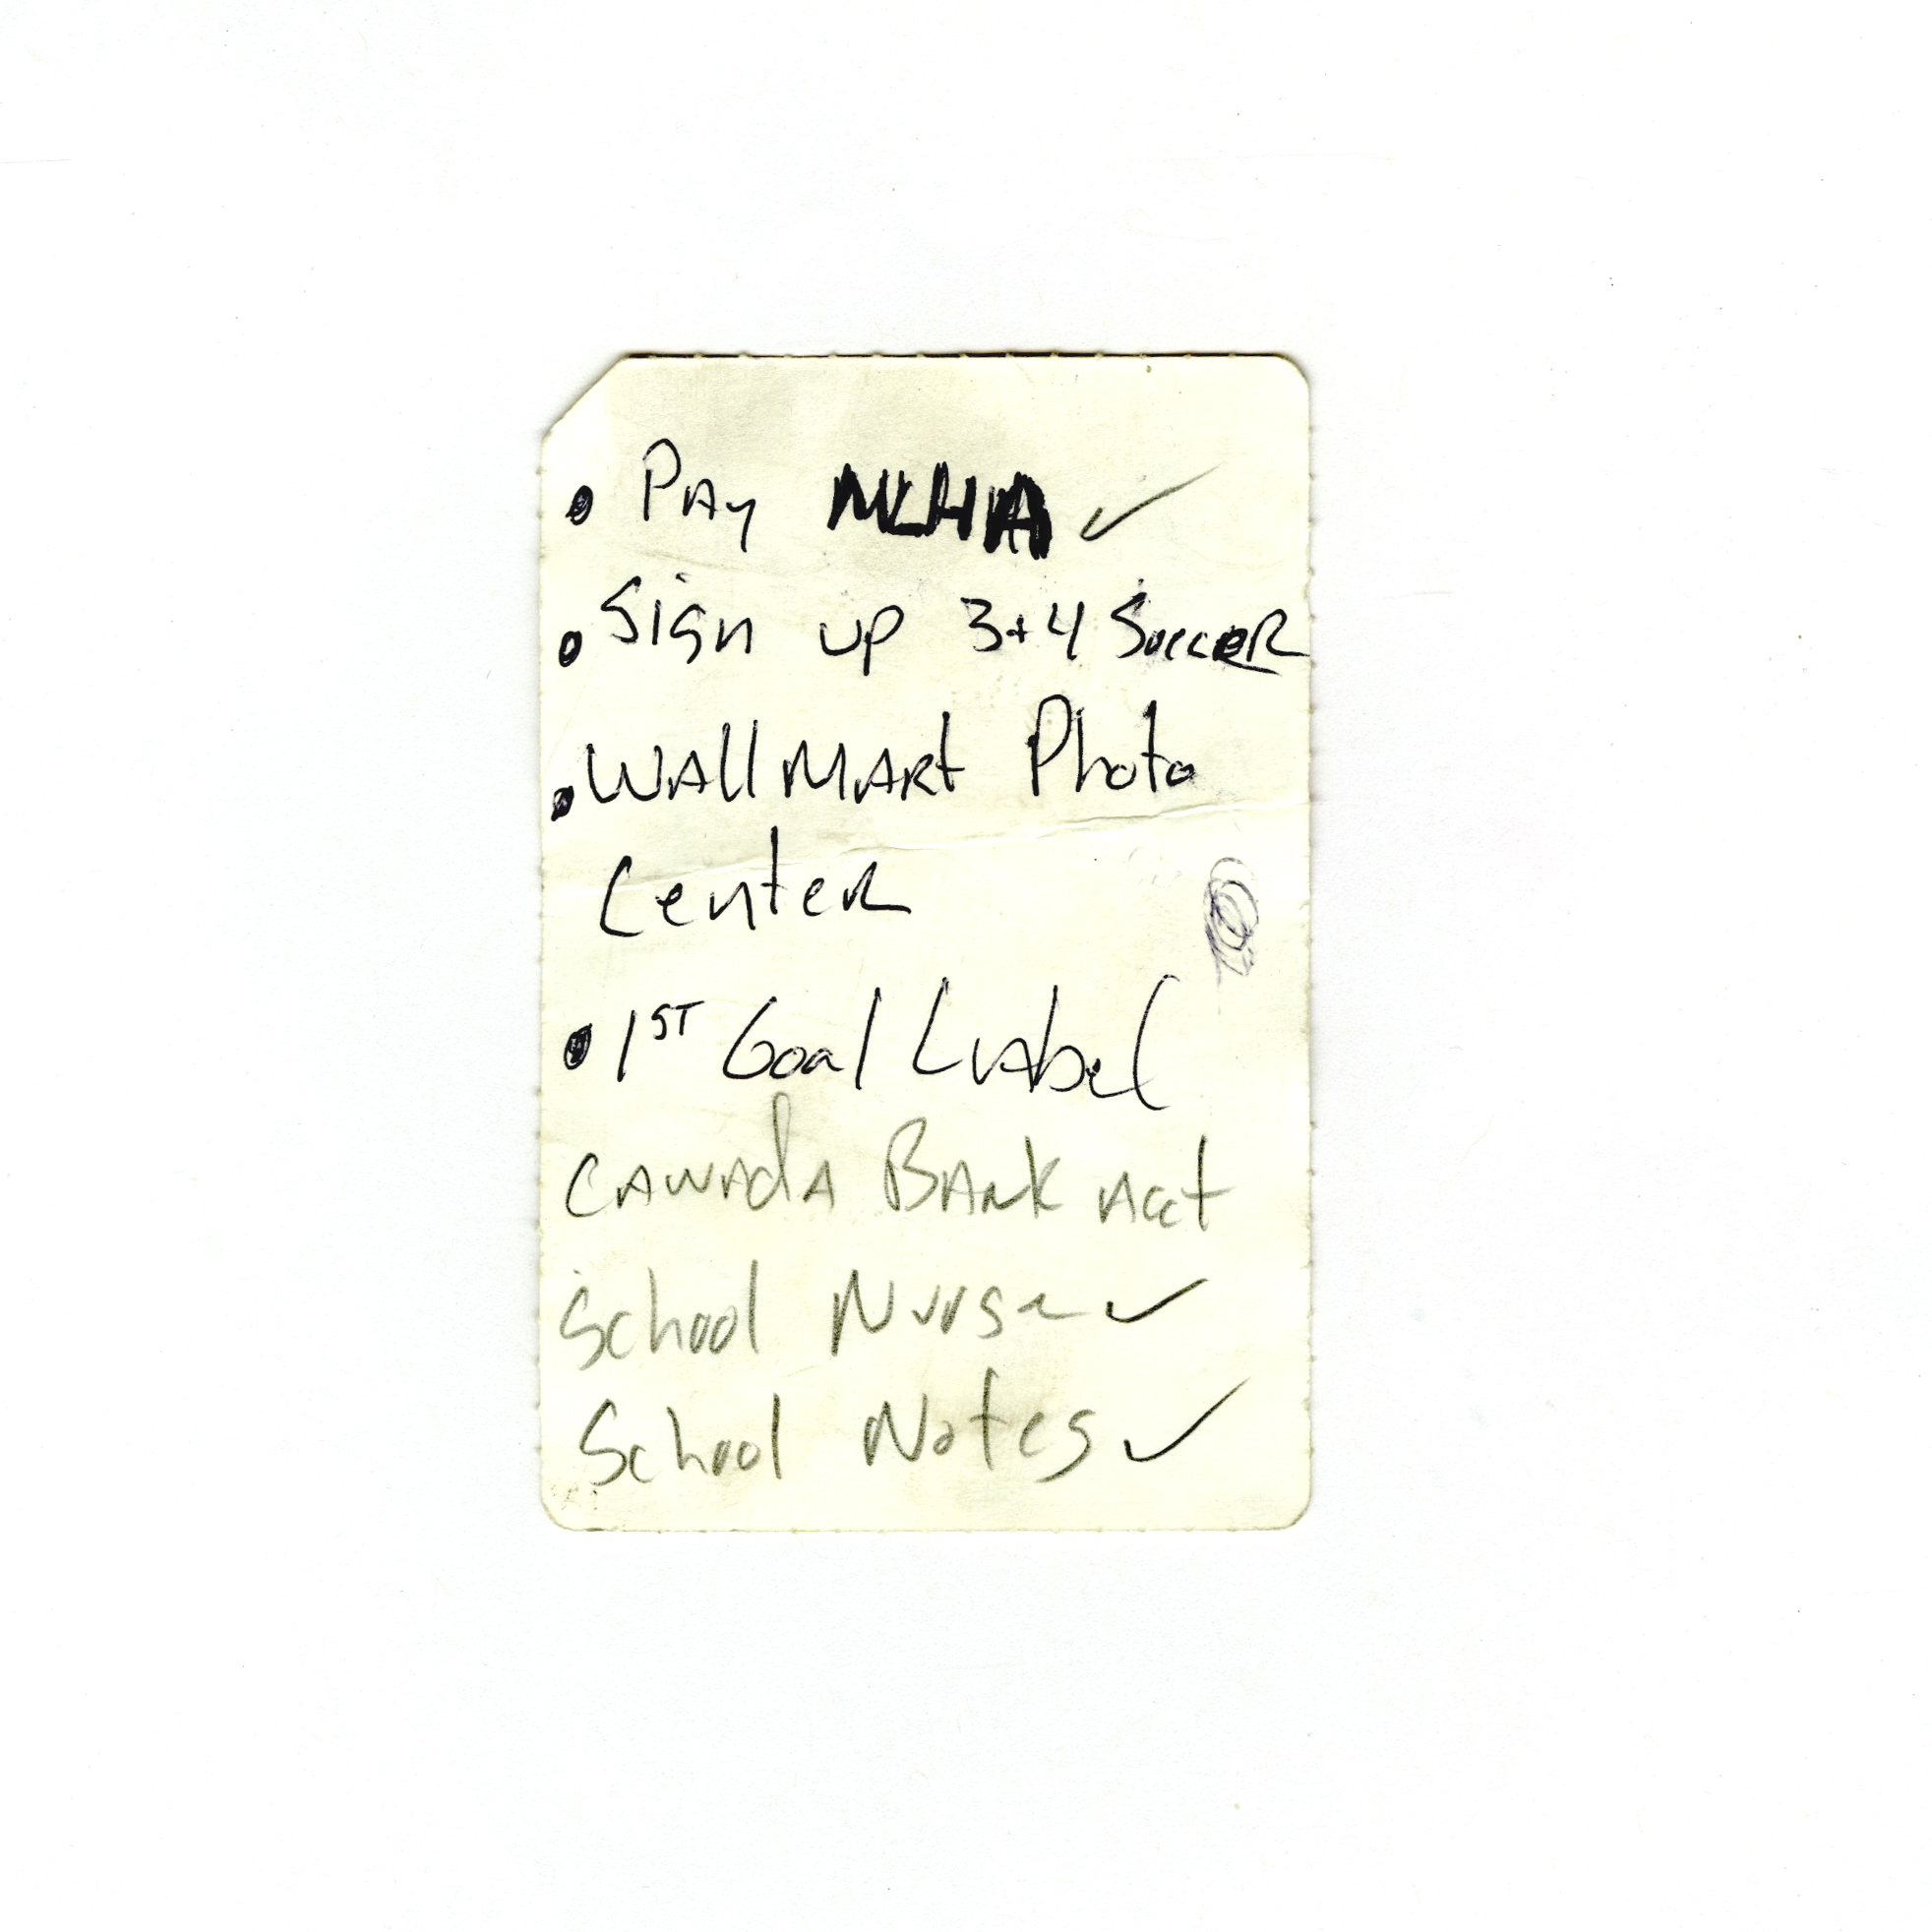 • Pay MLHA ✓
• Sign up 3+4 Soccer
• WAllMARt Photo
Center
• 1ST Goal Label
CANAdA BANk Acct
School Nurse ✓
School Notes ✓